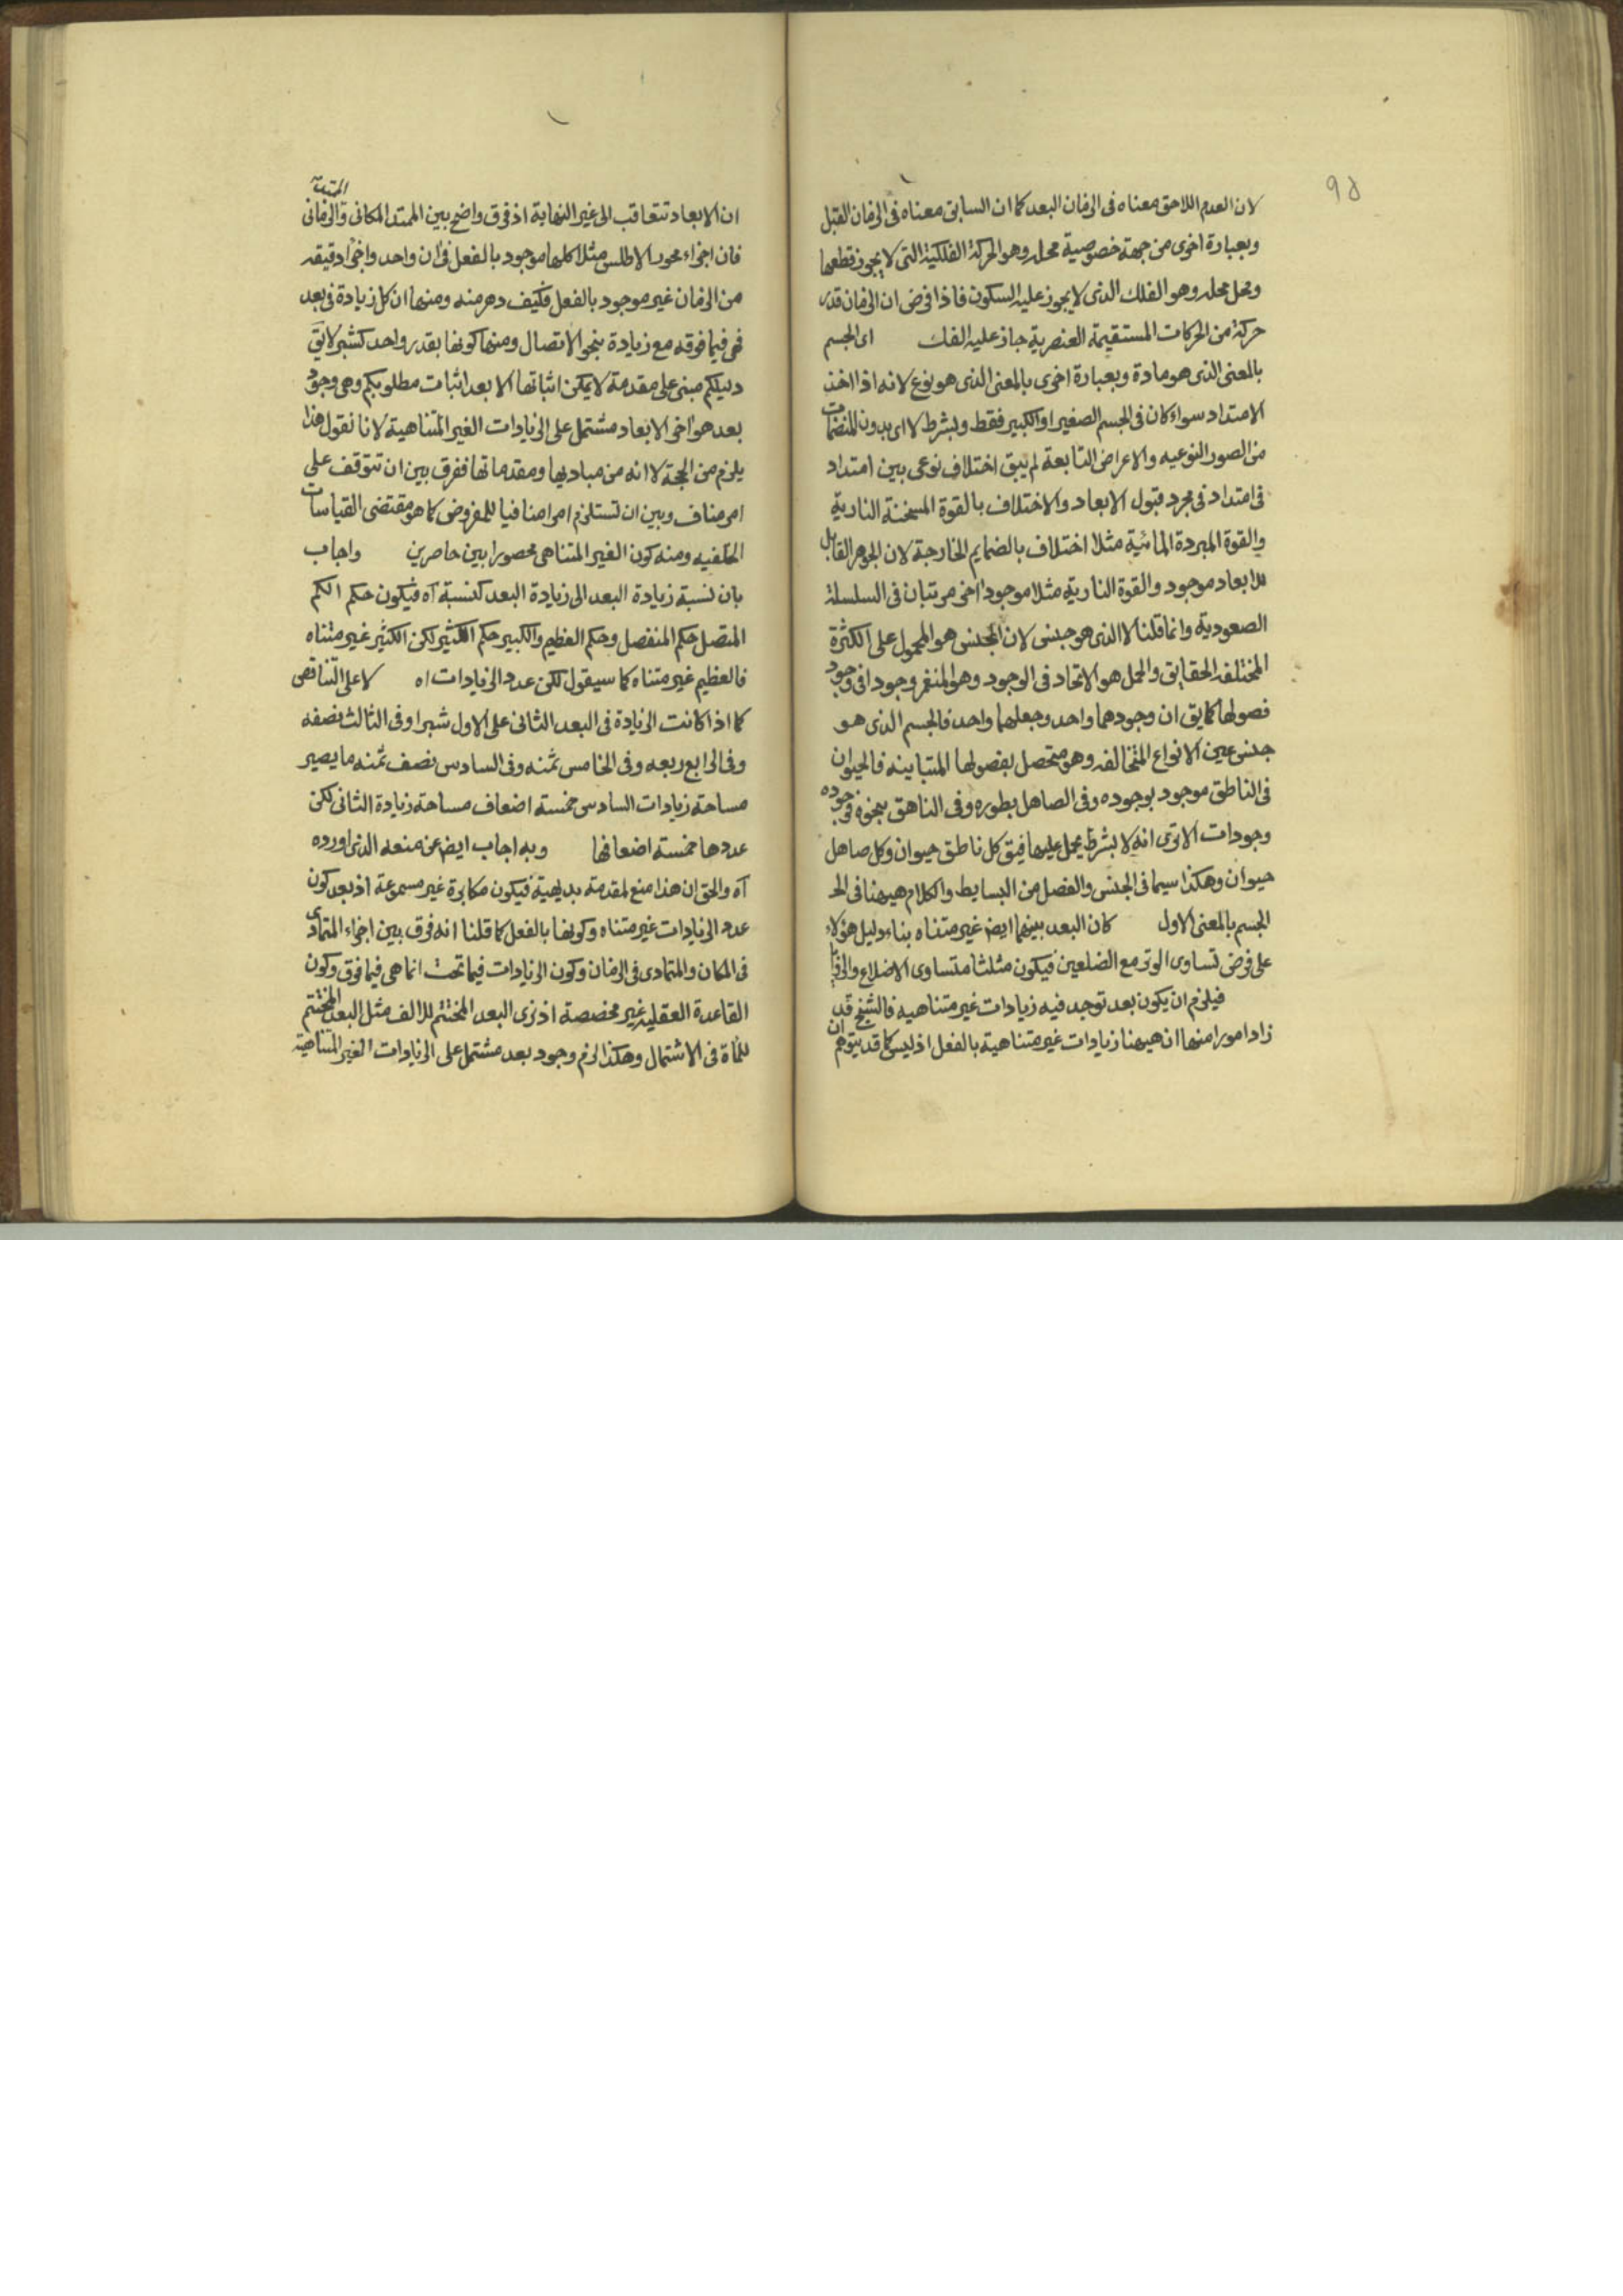 ٩٥
لان العدم اللاحق معناه فى الزمان البعد كما ان السابق معناه فى الزمان القبل
وبعبارة اخرى من جهة خصوصية محله وهو الحركة الفلكية التى لا يجوز قطعها
ومحل محله وهو الفلك الذى لا يجوز عليه السكون فاذا فرض ان الزمان قدر
حركة من الحركات المستقيمة العنصرية جاز عليه الفك اى الجسم
بالمعنى الذى هو مادة وبعبارة اخرى بالمعنى الذى هو نوع لانه اذا اخذ
الامتداد سواء كان فى الجسم الصغير او الكبير فقط وبشرط لا اى بدون المنضمات
من الصور النوعيه والاعراض التابعة لم يبق اختلاف نوعى بين امتداد
فى امتداد فى مجرد قبول الابعاد والاختلاف بالقوة المسخنة النارية
والقوة المبردة المائية مثلا اختلاف بالضمايم الخارجة لان الجوهر القابل
للابعاد موجود والقوة النارية مثلا موجود اخر مرتبان فى السلسلة
الصعودية وانما قلنا لا الذى هو جنس لان الجنس هو المحمول على الكثرة
المختلفة الحقايق والحمل هو الاتحاد فى الوجود وهو المنغمر وجودا فى وجود
فصولها كما يق ان وجودهما واحد وجعلهما واحد فالجسم الذى هو
جنس عين الانواع المتخالفه وهو متحصل بفصولها المتباينه فالحيوان
فى الناطق موجود بوجوده وفى الصاهل بطوره وفى الناهق بنحوه فوجوده
وجودات الا ترى انه لا بشرط يحمل عليها فيق كل ناطق حيوان وكل صاهل
حيوان وهكذا سيما فى الجنس والفصل من البسايط والكلام هيهنا فى
الجسم بالمعنى الاول كان البعد بينهما ايض غير متناه بناء دليل هؤلاء
على فرض تساوى الوتر مع الضلعين فيكون مثلثا متساوى الاضلاع والزوايا
فيلزم ان يكون بعد توجد فيه زيادات غير متناهيه فالشيخ قد
زاد امورا منها ان هيهنا زيادات غير متناهية بالفعل اذ ليس كما قد يتوهم ان
ان الابعاد تتعاقب الى غير النهاية اذ فرق واضح بين الممتد المكانى والزمانى
فان اجزاء محور الاطلس مثلا كلها موجود بالفعل فى ان واحد واجزاء دقيقه
من الزمان غير موجود بالفعل فكيف دهر منه ومنها ان كل زيادة فى بعد
فهى فيما فوقه مع زيادة بنحو الاتصال ومنها كونها بقدر واحد كشبر لا يق
دليلكم مبنى على مقدمة لا يمكن اثباتها الا بعد اثبات مطلوبكم وهى وجود
بعد هو اخر الابعاد مشتمل على الزيادات الغير المتناهية لانا نقول هذا
يلزم من الحجة لا انه من مباديها ومقدماتها ففرق بين ان تتوقف على
امر مناف وبين ان تستلزم امرا منافيا للمفروض كما هو مقتضى القياسات
الخلفيه ومنه كون الغير المتناهى محصورا بين حاصرين واجاب
بان نسبة زيادة البعد الى زيادة البعد كنسبة آه فيكون حكم الكم
المتصل حكم المنفصل وحكم العظيم والكبير حكم الكثير لكن الكثير غير متناه
فالعظيم غير متناه كما سيقول لكن عدد الزيادات اه لا على التناقص
كما اذا كانت الزيادة فى البعد الثانى على الاول شبرا وفى الثالث نصفه
وفى الرابع ربعه وفى الخامس ثمنه وفى السادس نصف ثمنه ما يصير
مساحة زيادات السادس خمسة اضعاف مساحة زيادة الثانى لكن
عددها خمسة اضعافها وبه اجاب ايض عن منعه الذى اورده
آه والحق ان هذا منع لمقدمة بديهية فيكون مكابرة غير مسموعة اذ بعد كون
عدد الزيادات غير متناه وكونها بالفعل كما قلنا انه فرق بين اجزاء المتمادى
فى المكان والمتمادى فى الزمان وكون الزيادات فيما تحت انما هى فيما فوق وكون
القاعدة العقليه غير مخصصة اذ نرى البعد المختتم للالف مثل البعد المختتم
للمأة فى الاشتمال وهكذا لزم وجود بعد مشتمل على الزيادات الغير المتناهية